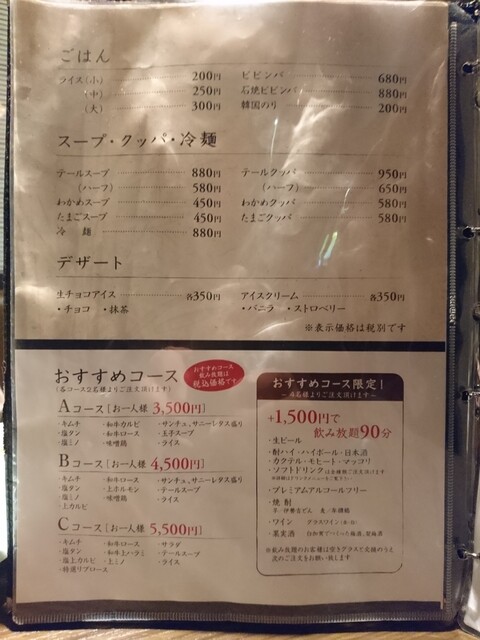 ごはん
ライス(小) 200円
(中) 250円
(大) 300円
ビビンバ 680円
石焼ビビンバ 880円
韓国のり 200円
スープ・クッパ・冷麺
テールスープ 880円
(ハーフ) 580円
わかめスープ 450円
たまごスープ 450円
冷麺 880円
テールクッパ 950円
(ハーフ) 650円
わかめクッパ 580円
たまごクッパ 580円
デザート
生チョコアイス 各350円
・チョコ ・抹茶
アイスクリーム 各350円
・バニラ ・ストロベリー
※表示価格は税別です
おすすめコース
(各コース2名様よりご注文頂けます)
おすすめコース
飲み放題は
税込価格です
Aコース[お一人様 3,500円]
・キムチ ・和牛カルビ ・サンチュ、サニーレタス盛り
・塩タン ・和牛ロース ・玉子スープ
・塩ミノ ・味噌鶏 ・ライス
Bコース[お一人様 4,500円]
・キムチ ・和牛ロース ・サンチュ、サニーレタス盛り
・塩タン ・上ホルモン ・テールスープ
・塩ミノ ・味噌鶏 ・ライス
・上カルビ
Cコース[お一人様 5,500円]
・キムチ ・和牛ロース ・サラダ
・塩タン ・和牛上ハラミ ・テールスープ
・塩上カルビ ・上ミノ ・ライス
・特選リブロース
おすすめコース限定!
+1,500円で
飲み放題90分
・生ビール
・酎ハイ・ハイボール・日本酒
・カクテル・モヒート・マッコリ
・ソフトドリンク
・プレミアムアルコールフリー
・焼酎
・ワイン グラスワイン(赤・白)
・果実酒
※飲み放題のお客様は空きグラスと交換のうえ
次のご注文をお願い致します